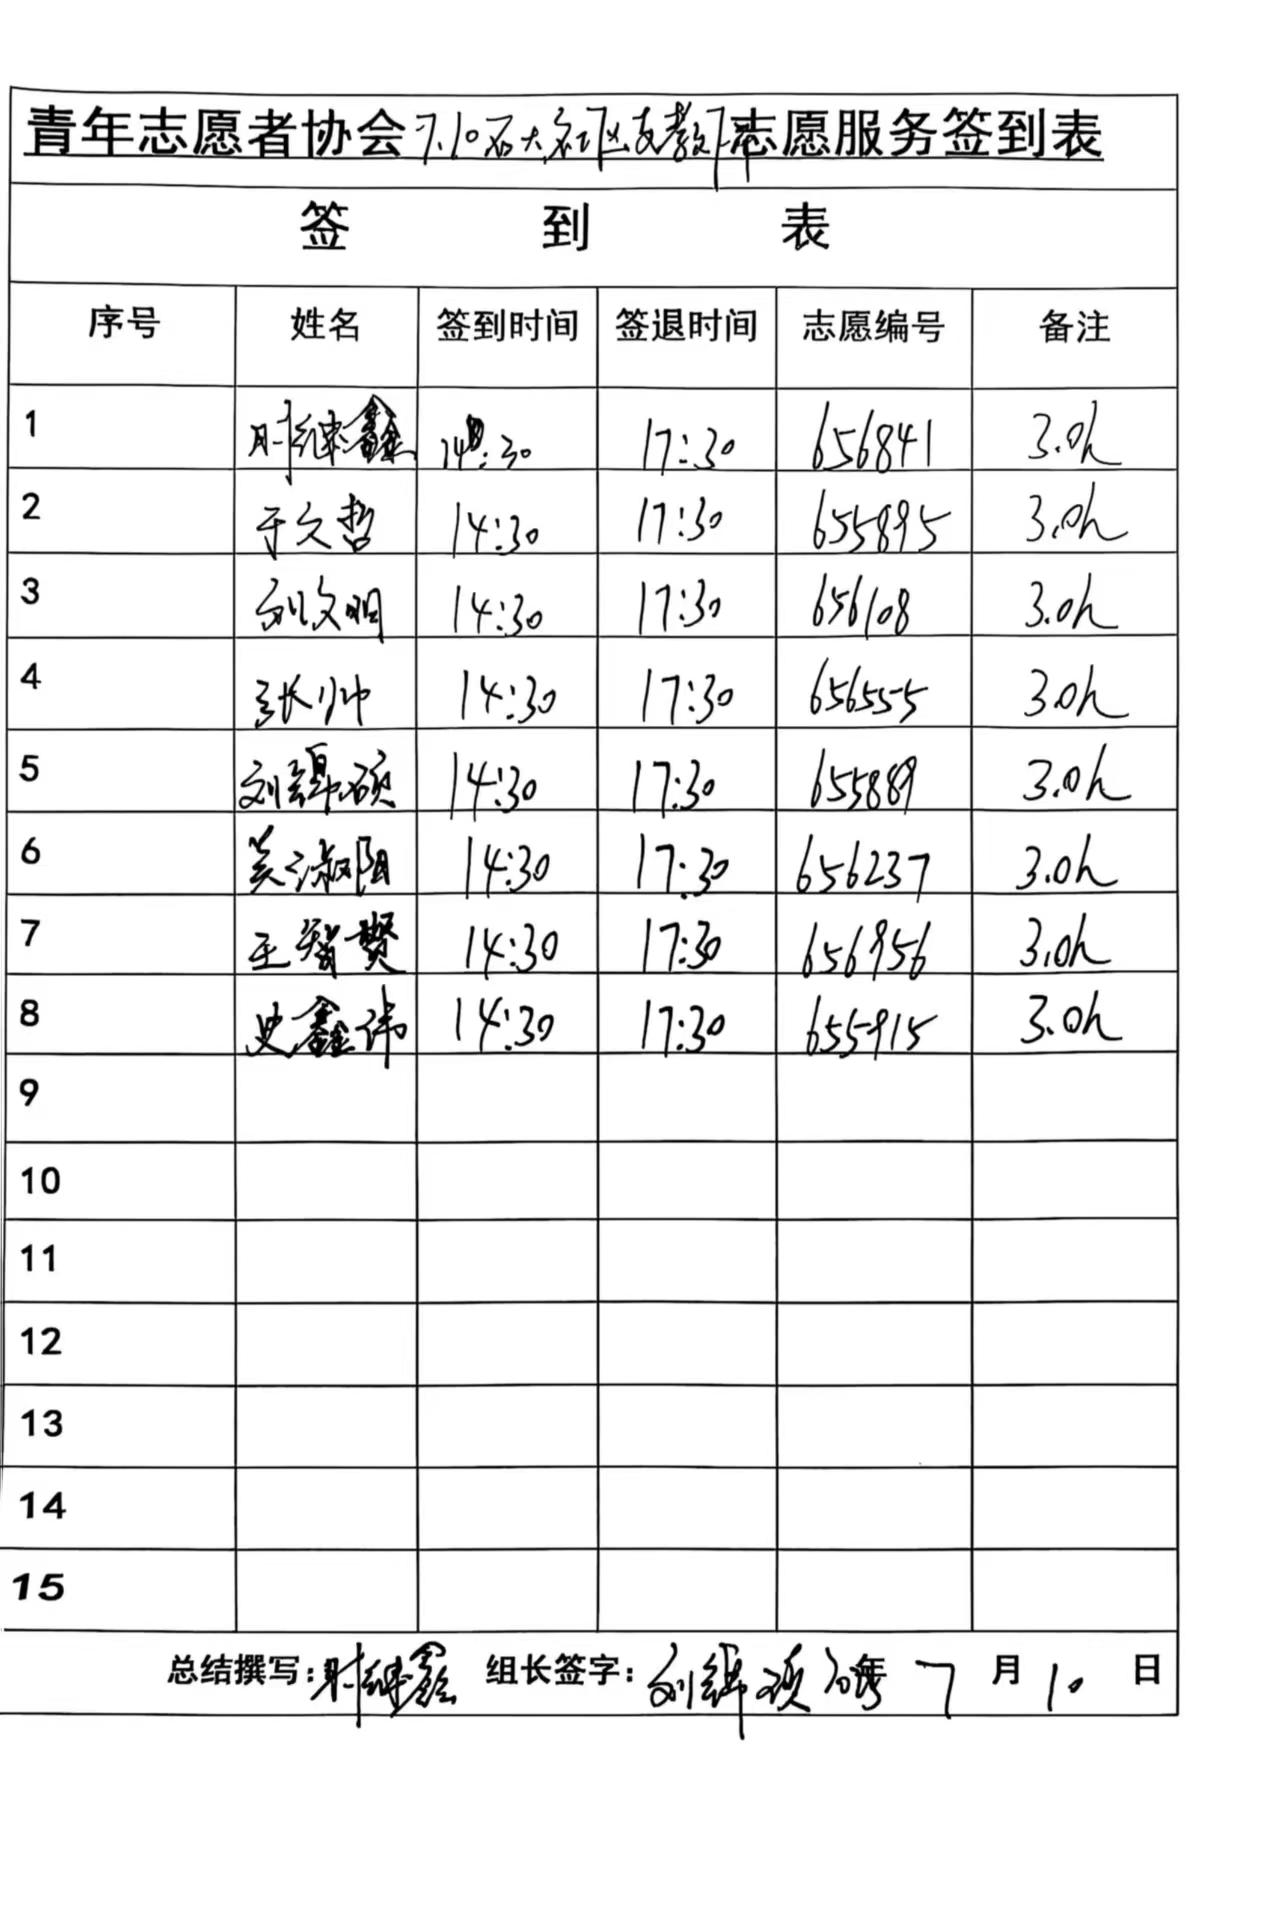 青年志愿者协会7.10石大社区支教下午志愿服务签到表
签 到 表
序号 姓名 签到时间 签退时间 志愿编号 备注
1 时继鑫 14:30 17:30 656841 3.0h
2 于文哲 14:30 17:30 655895 3.0h
3 刘文明 14:30 17:30 656108 3.0h
4 张帅 14:30 17:30 656555 3.0h
5 刘锦硕 14:30 17:30 655889 3.0h
6 吴淑阳 14:30 17:30 656237 3.0h
7 王智赞 14:30 17:30 656956 3.0h
8 史鑫伟 14:30 17:30 655915 3.0h
9
10
11
12
13
14
15
总结撰写：时继鑫 组长签字：刘锦硕 年 7 月 10 日